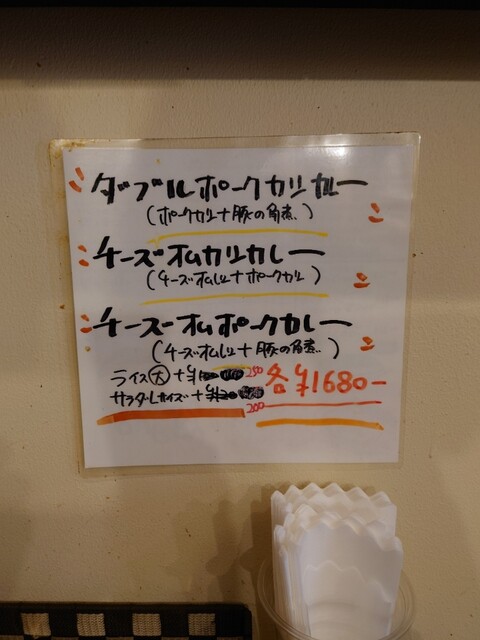 ダブルポークカリカレー
(ポークカリ+豚の角煮)
チーズオムカリカレー
(チーズオムレツ+ポークカリ)
チーズオムポークカレー
(チーズオムレツ+豚の角煮)
ライス大 +¥ 250 各¥1680-
サラダ・Lサイズ +¥ 200